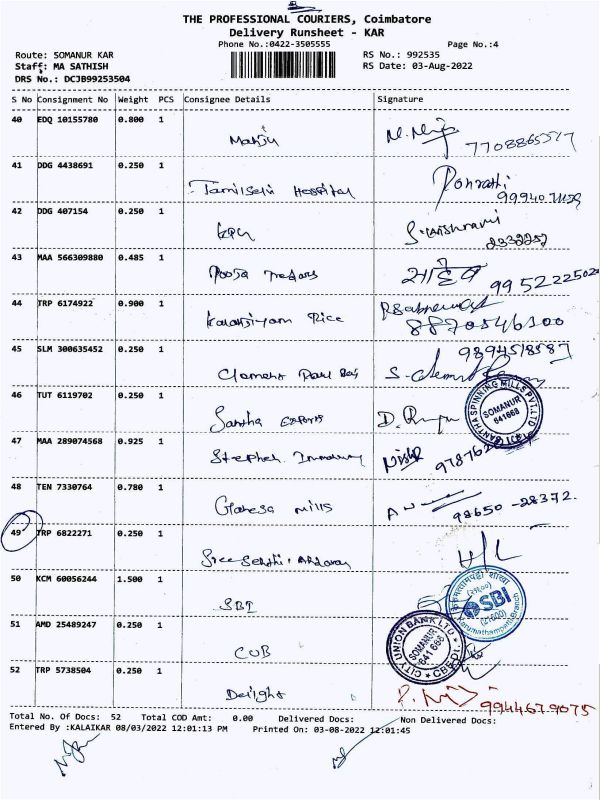 THE PROFESSIONAL COURIERS, Coimbatore
Delivery Runsheet - KAR
Phone No.:0422-3505555 Page No.:4
Route: SOMANUR KAR RS No.: 992535
Staff: MA SATHISH RS Date: 03-Aug-2022
DRS No.: DCJB99253504
S No Consignment No Weight PCS Consignee Details Signature
40 EDQ 10155780 0.800 1
Manju 7708865577
41 DDG 4438691 0.250 1
Tamilselvi Hospital
42 DDG 407154 0.250 1
2332252
43 MAA 566309880 0.485 1
Pooja Traders 9952225020
44 TRP 6174922 0.900 1
Kalanjiyam Rice 8870546300
45 SLM 300635452 0.250 1 9894518587
Clement Paul Raj
46 TUT 6119702 0.250 1
Santha Exports SOMANUR 641668
47 MAA 289074568 0.925 1
Stephen
48 TEN 7330764 0.780 1
Ganesa Mills 98650-28372.
49 TRP 6822271 0.250 1
Sree
50 KCM 60056244 1.500 1
SBI SBI
51 AMD 25489247 0.250 1
CUB CITY UNION BANK LTD SOMANUR 641668
52 TRP 5738504 0.250 1
Delight 9944679075
Total No. Of Docs: 52 Total COD Amt: 0.00 Delivered Docs: Non Delivered Docs:
Entered By :KALAIKAR 08/03/2022 12:01:13 PM Printed On: 03-08-2022 12:01:45